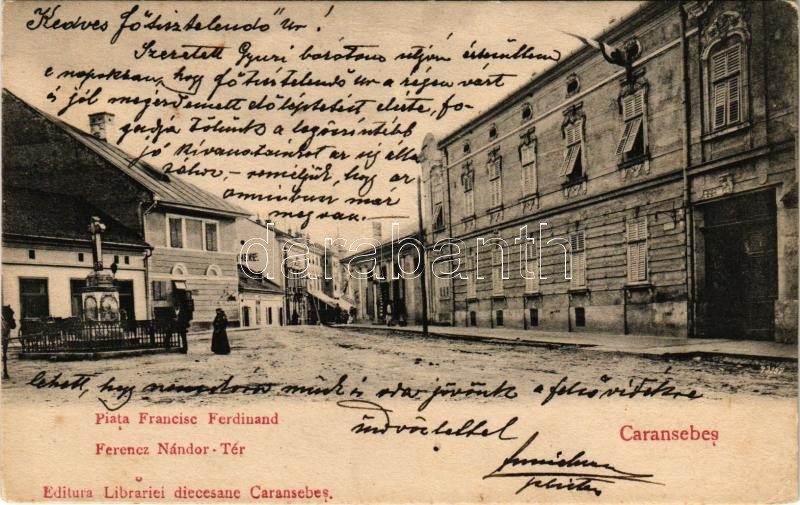 Kedves Főtisztelendő Úr!
Szeretett Gyuri barátom útján értesültem
e napokban, hogy főtisztelendő úr a régen várt
és jól megérdemelt előléptetést elérte, fo-
gadja tőlünk a legőszintébb
jó kívánatainkat az új állá
sához, - reméljük, hogy az
omnibusz már
megvan.
darabanth
lehet, hogy nemsokára mink is oda jövünk a felső vidékre
üdvözlettel
Piața Francisc Ferdinand
Ferencz Nándor-Tér
Caransebeș
Editura Librariei diecesane Caransebeș.